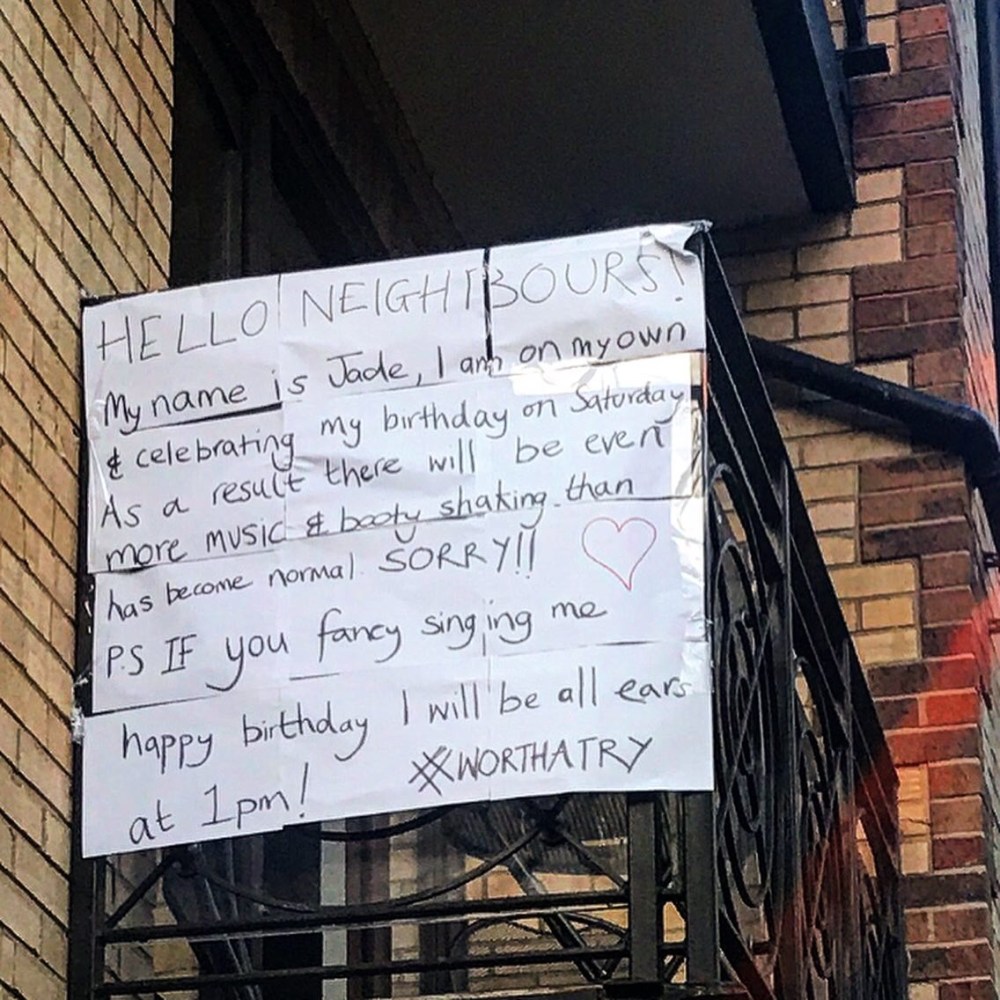 HELLO NEIGHBOURS!
My name is Jade, I am on my own
& celebrating my birthday on Saturday
As a result there will be even
more music & booty shaking than
has become normal. SORRY!!
P.S IF you fancy singing me
happy birthday I will be all ears
at 1pm! #WORTHATRY